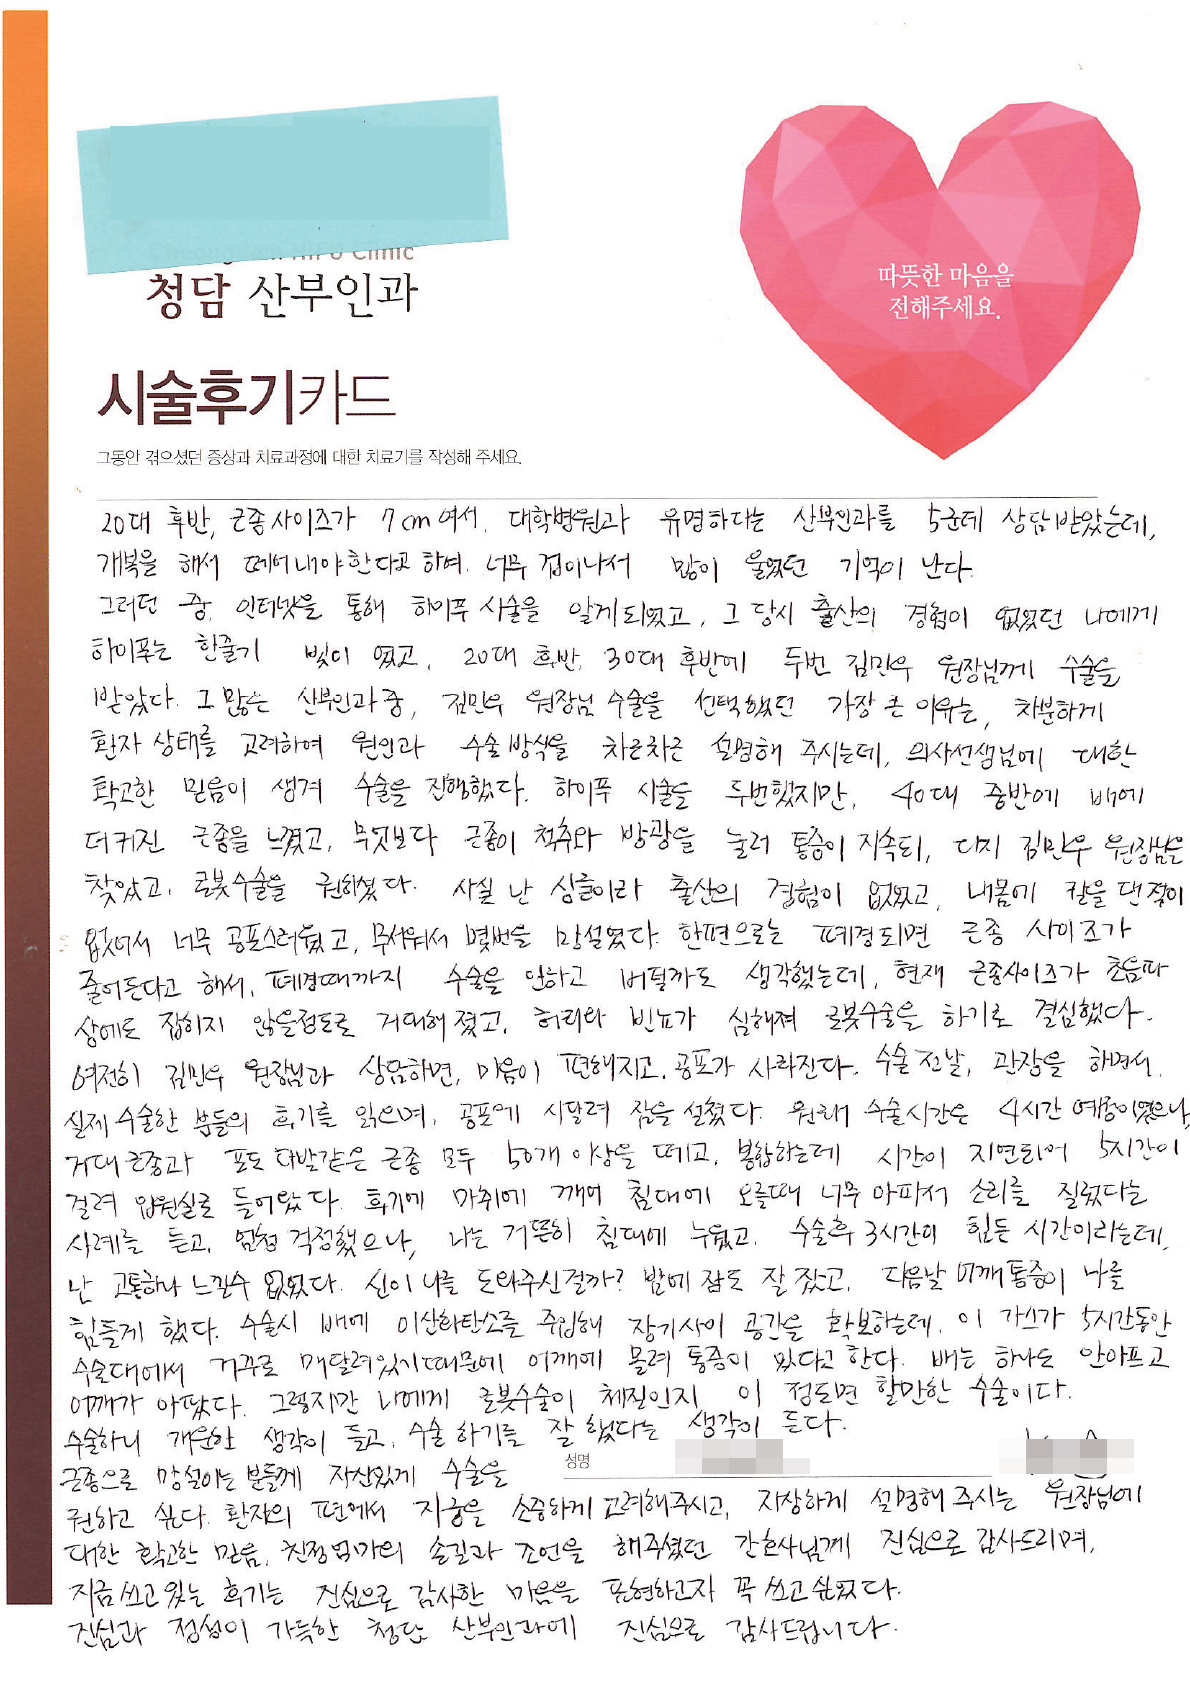 Cheongdam HIFU Clinic
청담 산부인과
따뜻한 마음을
전해주세요.
시술후기카드
그동안 겪으셨던 증상과 치료과정에 대한 치료기를 작성해 주세요.
20대 후반, 근종사이즈가 7cm여서, 대학병원과 유명하다는 산부인과를 5군데 상담받았는데,
개복을 해서 떼어내야한다고 하여 너무 겁이나서 많이 울었던 기억이 난다.
그러던 중, 인터넷을 통해 하이푸 시술을 알게되었고, 그 당시 출산의 경험이 없었던 나에게
하이푸는 한줄기 빛이 였고, 20대 후반, 30대 후반에 두번 김민우 원장님께 수술을
받았다. 그 많은 산부인과 중, 김민우 원장님 수술을 선택했던 가장 큰 이유는, 차분하게
환자 상태를 고려하여 원인과 수술 방식을 차근차근 설명해 주시는데, 의사선생님에 대한
확고한 믿음이 생겨 수술을 진행했다. 하이푸 시술을 두번했지만, 40대 중반에 배에
더커진 근종을 느꼈고, 무엇보다 근종이 척추와 방광을 눌러 통증이 지속되, 다시 김민우 원장님을
찾았고, 로봇수술을 권하셨다. 사실 난 싱글이라 출산의 경험이 없었고, 내몸에 칼을 댄적이
없어서 너무 공포스러웠고, 무서워서 몇번을 망설였다. 한편으로는 폐경되면 근종 사이즈가
줄어든다고 해서, 폐경때까지 수술을 안하고 버틸까도 생각했는데, 현재 근종사이즈가 초음파
상에도 잡히지 않을정도로 거대해졌고, 허리와 빈뇨가 심해져 로봇수술을 하기로 결심했다.
여전히 김민우 원장님과 상담하면, 마음이 편해지고, 공포가 사라진다. 수술 전날, 관장을 하면서,
실제 수술한 분들의 후기를 읽으며, 공포에 시달려 잠을 설쳤다. 원래 수술시간은 4시간 예정이였으나,
거대 근종과 포도 다발같은 근종 모두 50개 이상을 떼고, 봉합하는데 시간이 지연되어 5시간이
걸려 입원실로 들어왔다. 후기에 마취에 깨어 침대에 오를때 너무 아파서 소리를 질렀다는
사례를 듣고, 엄청 걱정했으나, 나는 거뜬히 침대에 누웠고, 수술후 3시간이 힘든 시간이라는데,
난 고통하나 느낄수 없었다. 신이 나를 도와주신걸까? 밤에 잠도 잘 잤고, 다음날 어깨통증이 나를
힘들게 했다. 수술시 배에 이산화탄소를 주입해 장기사이 공간을 확보하는데, 이 가스가 5시간동안
수술대에서 거꾸로 매달려있기때문에 어깨에 몰려 통증이 있다고 한다. 배는 하나도 안아프고
어깨가 아팠다. 그렇지만 나에게 로봇수술이 체질인지 이 정도면 할만한 수술이다.
수술하니 개운한 생각이 들고, 수술 하기를 잘 했다는 생각이 든다.
성명
근종으로 망설이는 분들께 자신있게 수술을
권하고 싶다. 환자의 편에서 자궁을 소중하게 고려해주시고, 자상하게 설명해 주시는 원장님에
대한 확고한 믿음, 친정엄마의 손길과 조언을 해주셨던 간호사님께 진심으로 감사드리며,
지금 쓰고 있는 후기는 진심으로 감사한 마음을 표현하고자 꼭 쓰고 싶었다.
진심과 정성이 가득한 청담 산부인과에 진심으로 감사드립니다.